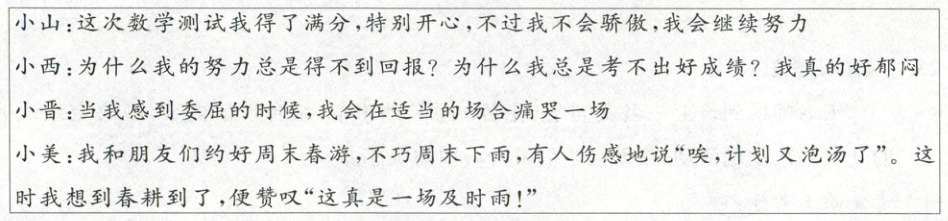 小山:这次数学测试我得了满分,特别开心,不过我不会骄傲,我会继续努力
小西:为什么我的努力总是得不到回报？为什么我总是考不出好成绩？我真的好郁闷
小晋:当我感到委屈的时候,我会在适当的场合痛哭一场
小美:我和朋友们约好周末春游,不巧周末下雨,有人伤感地说“唉,计划又泡汤了”。这
时我想到春耕到了,便赞叹“这真是一场及时雨!”